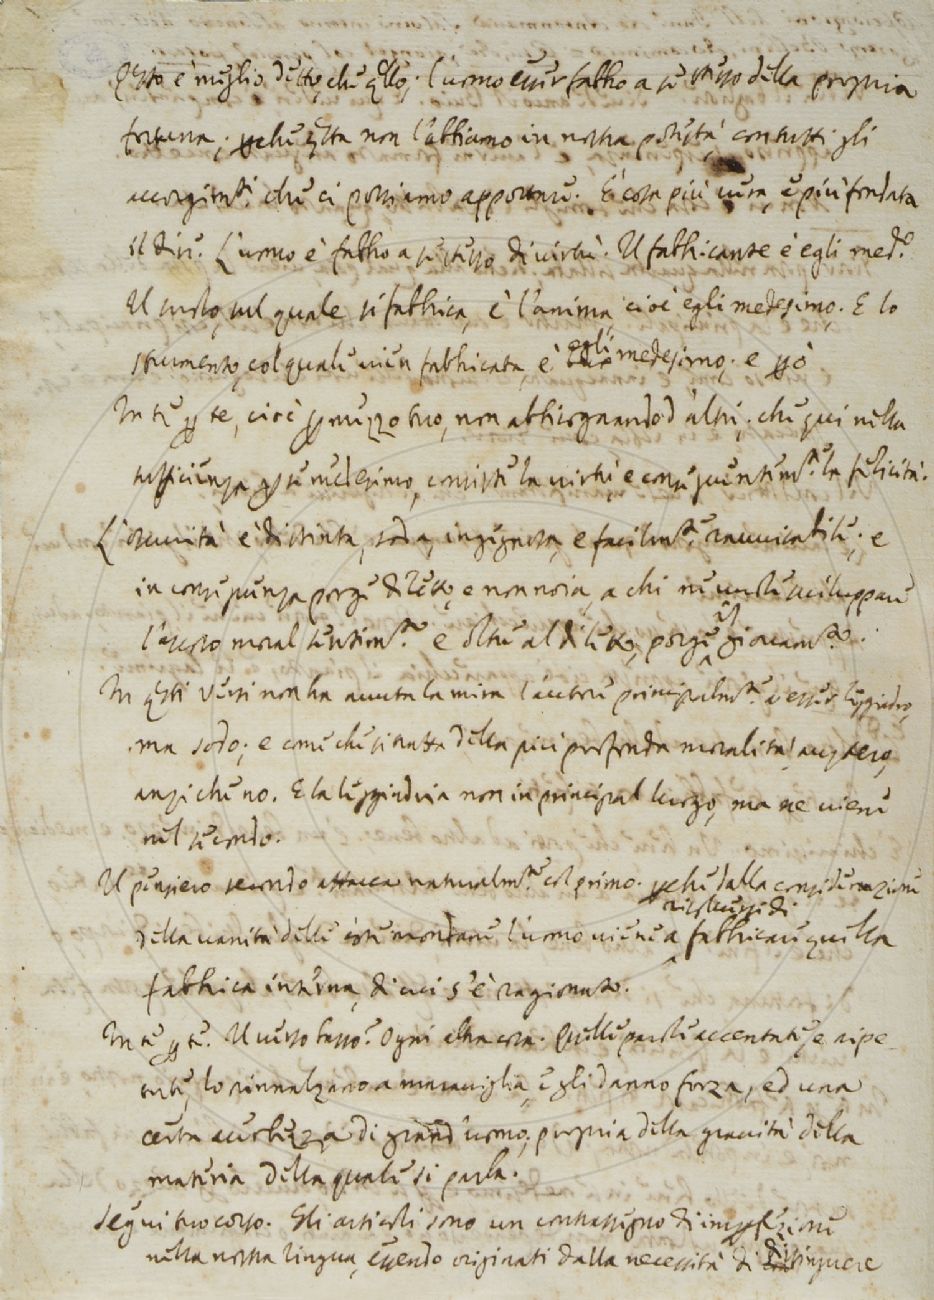 Qsto è meglio detto, che qllo; l'uomo esser fabbro a se stesso della propria
fortuna; pche qsta non l'abbiamo in nostra potestà, con tutti gli
accorgimti che ci possiamo apportare. È cosa più vera, e più fondata
il dire. L'uomo è fabbro a se stesso di virtù. Il fabbricante è egli medo
Il suolo, sul quale si fabbrica, è l'anima, cioè egli medesimo. E lo
strumento, col quale vien fabbricata, è egli medesimo; e pò
In te p te, cioè p mezzo tuo, non abbisognando d'altri; che qui nella
sufficienza p se medesimo, consiste la virtù, e conseguentemte la felicità.
L'oscurità è distinta, soda, ingegnosa, e facilmte ravvisabile; e
in conseguenza porge diletto, e non noia, a chi ne vuole sviluppare
l'ascoso moral sentimto e oltre al diletto, porge il giovamto.
In qsti versi non ha avuta la mira l'autore principalmte a esser leggiadro,
ma sodo; e come che si tratta della più profonda moralità, austero,
anzi che no. E la leggiadria non in principal luogo, ma ne viene
nel secondo.
Il pensiero secondo attacca naturalmte col primo. pche dalla considerazione
della vanità delle cose mondane l'uomo viene a fabbricare quella
fabbrica interna, di cui s'è ragionato.
In te p te. Il verso basso. Ogni altra cosa. Quelle parole accentate, e ripe-
tute, lo rinnalzano a maraviglia, e gli danno forza, ed una
certa austerezza di grand'uomo, propria della gravità della
materia della quale si parla.
Segui tuo corso. Gli articoli sono un contrassegno di impfezione
nella nostra lingua, essendo originati dalla necessità di distinguere